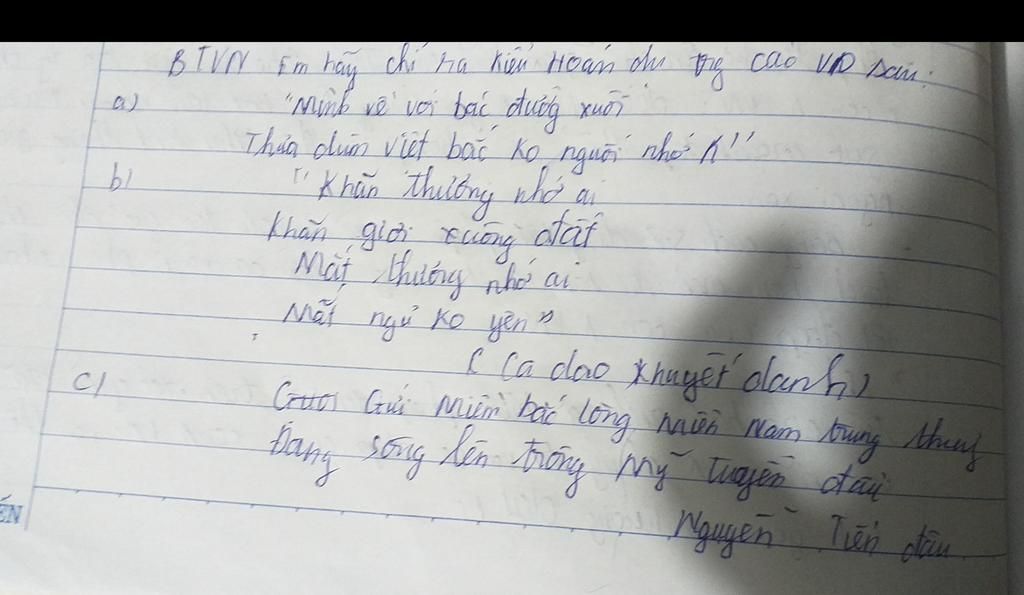 BTVN Em hãy chỉ ra kiểu Hoán dụ tng các VD sau:
a) "Mình về với bác đường xuôi
Thưa dùm việt bắc ko nguôi nhớ
b) "Khăn thương nhớ ai
khăn giơi xuống đất
Mắt thương nhớ ai
Mắt ngủ ko yên"
(Ca dao khuyết danh)
c) Gửi Miền bắc lòng miền Nam trung thuỷ
Đang sông lên trống Mỹ tuyến đầu
Nguyễn Tiến đâu
ẾN